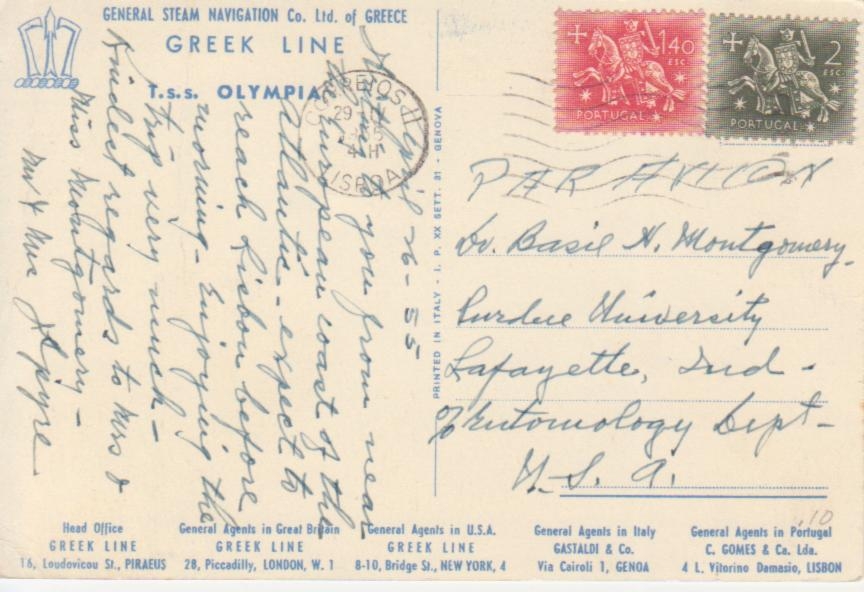 GENERAL STEAM NAVIGATION Co. Ltd. of GREECE
GREEK LINE
T.s.s. OLYMPIA
April 26 - 55
you from near
European coast of the
Atlantic - expect to
reach Lisbon before
morning - Enjoying the
trip very much -
Kindest regards to Mrs &
Miss Montgomery -
Mr & Mrs
CORREIOS
29
4 H
LISBOA
PRINTED IN ITALY - I. P. XX SETT. 31 - GENOVA
1$40
ESC.
PORTUGAL
2
ESC.
PORTUGAL
PAR AVION
Dr. Basil N. Montgomery.
Purdue University
Lafayette, Ind -
% Entomology Dept -
U. S. A.
.10
Head Office
GREEK LINE
16, Loudovicou St., PIRAEUS
General Agents in Great Britain
GREEK LINE
28, Piccadilly, LONDON, W. 1
General Agents in U.S.A.
GREEK LINE
8-10, Bridge St., NEW YORK, 4
General Agents in Italy
GASTALDI & Co.
Via Cairoli 1, GENOA
General Agents in Portugal
C. GOMES & Ca. Lda.
4 L. Vitorino Damasio, LISBON